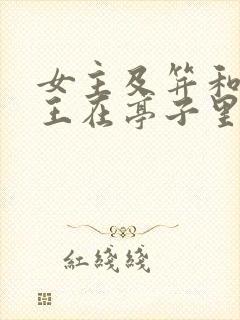 女主及笄和
王在亭子里
紅綫綫